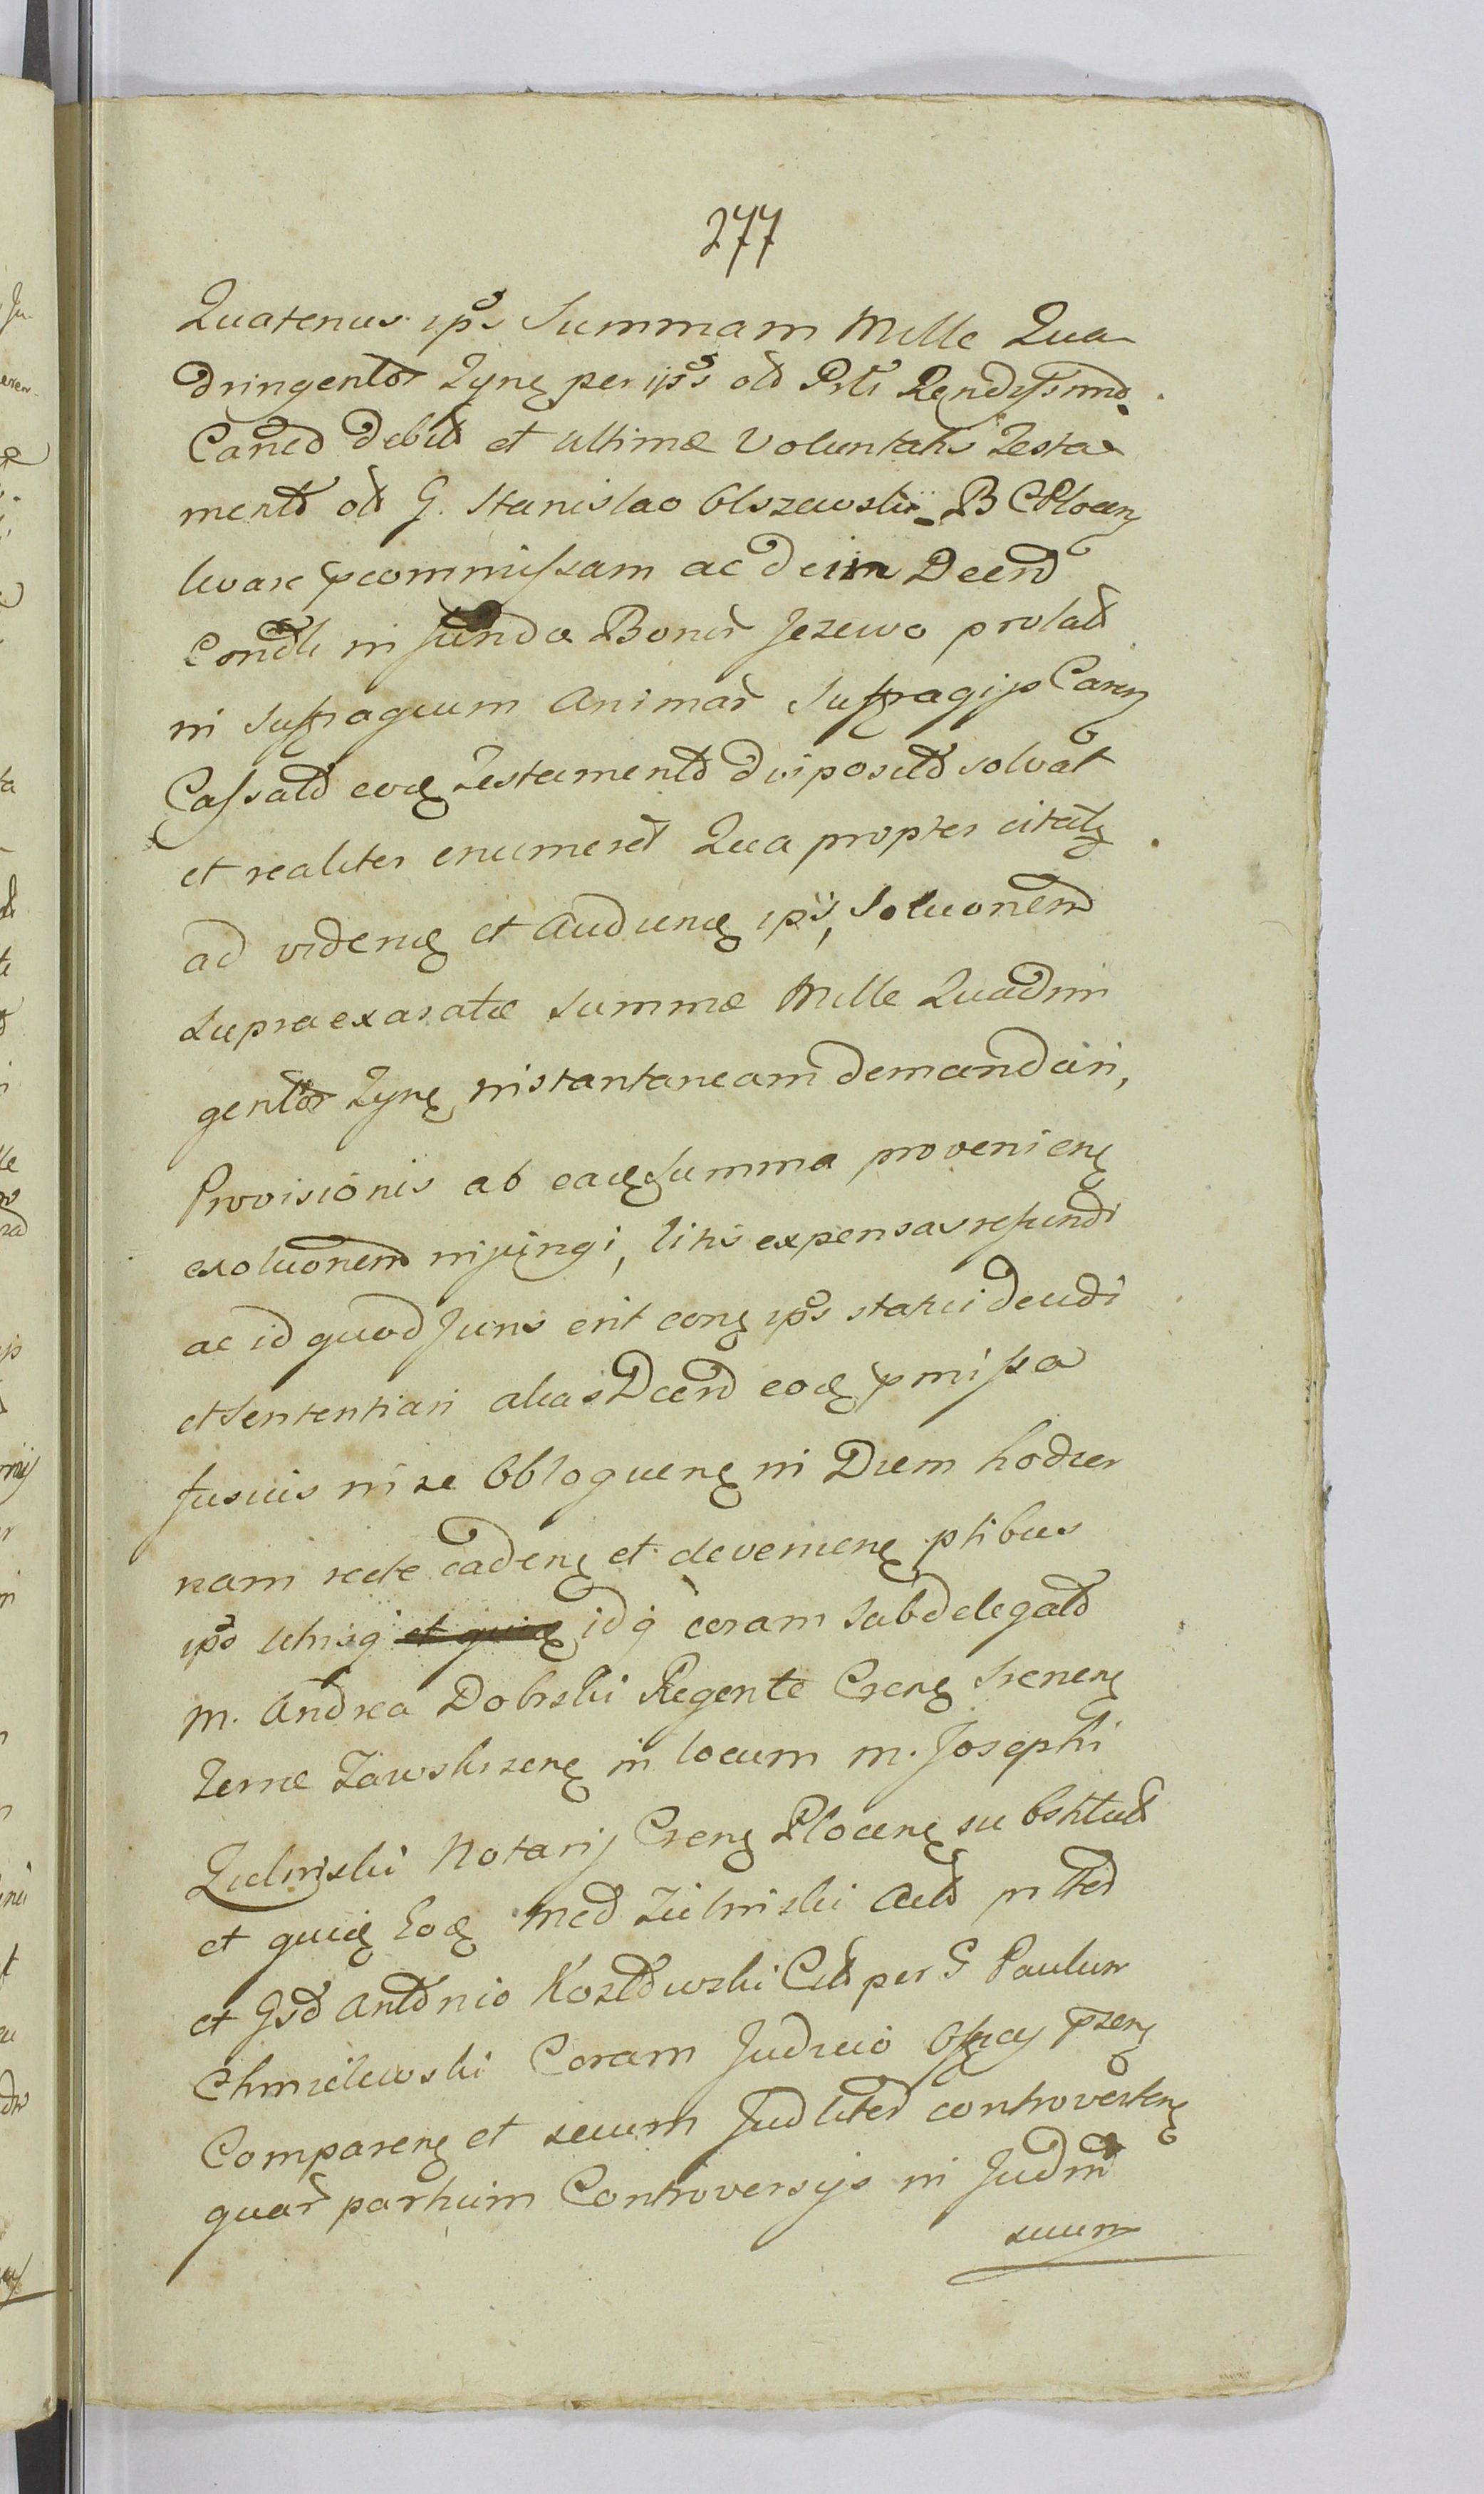 277
Quatenus ips Summam Mille Qua
dringentor Tynę per ips
Caned debit et ultimæ Voluntatis Testa
mento G. Stanislao Olszewski B C Plocen
levare pcommissam ac dein Decrto
Condli in fundo Bonor Jezewo prolat
in suffragium Animar suffragijs Caren
Cassato eoq Testamento disposito solvat
et realiter enumeret Qua propter citat
ad videnę et Audienę ips, Soluonem
supraexaratæ summæ Mille Quadrin
gentor Tynę instantaneam demandari,
Provisionis ab eadę Summa provenienę
exoluonem injungi, litis expensas refundi
ac id quod Juris erit conę ips statui decidi
et sententiari alias Decrto eodę pmissa
fusius in se Obloquenę in Diem hodier
nam recte cadenę et devenienę ptibus
ips utrisq et quidę idq coram Subdelegato
M. Andrea Dobrski Regente Crenę Srenenę
Terræ Zawskrzenę in locum M. Josephi
Zielinski Notarij Crenę Plocenę substitut
et quidę Eodę Mcd Zielinski
et Gsd Antonio Kozłowski per G Paulum
Chmielewski Coram Judicio Officij pzenę
Comparenę et secum Judliter controvertenę
quar partium Controversijs in Judm
suum